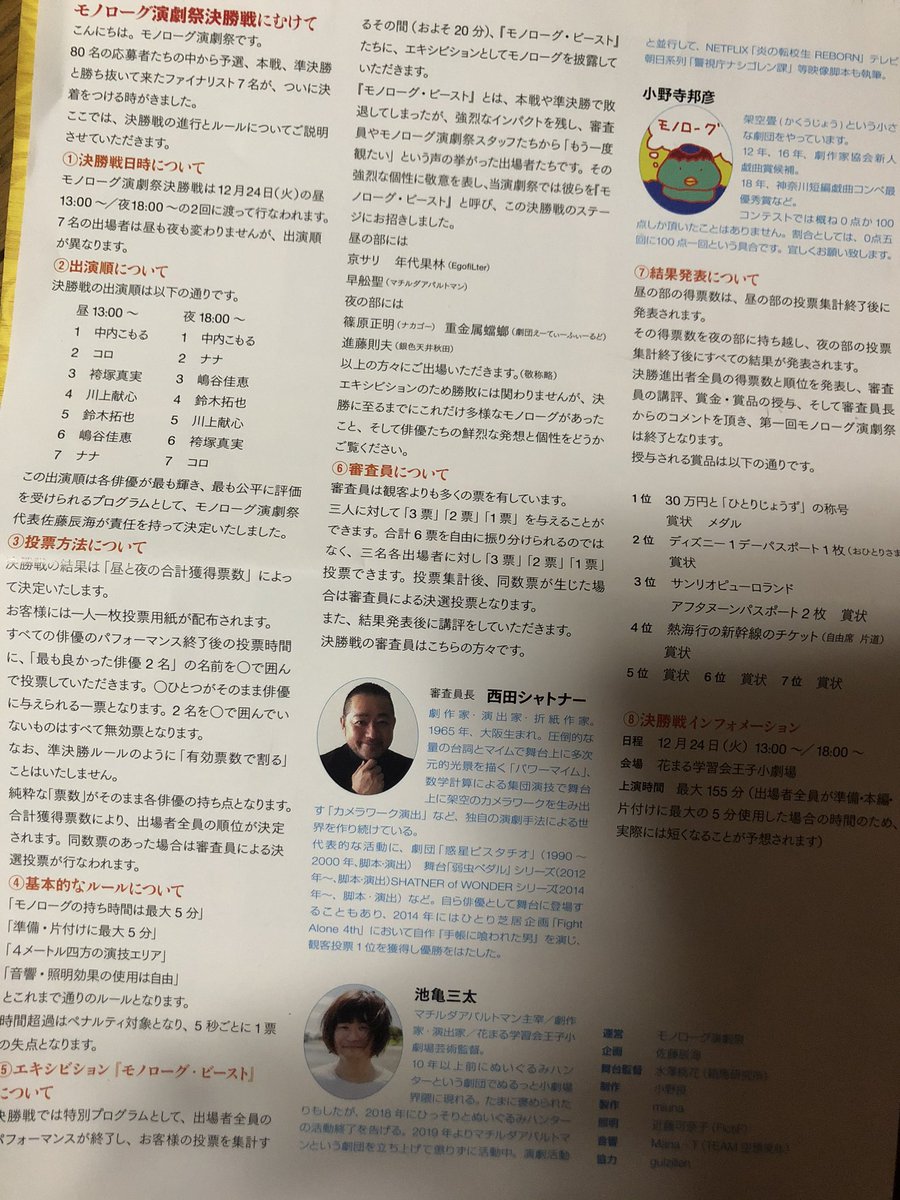 モノローグ演劇祭決勝戦にむけて
こんにちは。モノローグ演劇祭です。
80名の応募者たちの中から予選、本戦、準決勝
と勝ち抜いて来たファイナリスト7名が、ついに決
着をつける時がきました。
ここでは、決勝戦の進行とルールについてご説明
させていただきます。
①決勝戦日時について
モノローグ演劇祭決勝戦は12月24日(火)の昼
13:00〜/夜18:00〜の2回に渡って行なわれます。
7名の出場者は昼も夜も変わりませんが、出演順
が異なります。
②出演順について
決勝戦の出演順は以下の通りです。
昼 13:00〜
1 中内こもる
2 コロ
3 袴塚真実
4 川上献心
5 鈴木拓也
6 嶋谷佳恵
7 ナナ
夜 18:00〜
1 中内こもる
2 ナナ
3 嶋谷佳恵
4 鈴木拓也
5 川上献心
6 袴塚真実
7 コロ
この出演順は各俳優が最も輝き、最も公平に評価
を受けられるプログラムとして、モノローグ演劇祭
代表佐藤辰海が責任を持って決定いたしました。
③投票方法について
決勝戦の結果は「昼と夜の合計獲得票数」によっ
て決定いたします。
お客様には一人一枚投票用紙が配布されます。
すべての俳優のパフォーマンス終了後の投票時間
に、「最も良かった俳優2名」の名前を〇で囲ん
で投票していただきます。〇ひとつがそのまま俳優
に与えられる一票となります。2名を〇で囲んでい
ないものはすべて無効票となります。
なお、準決勝ルールのように「有効票数で割る」
ことはいたしません。
純粋な「票数」がそのまま各俳優の持ち点となります。
合計獲得票数により、出場者全員の順位が決定
されます。同数票のあった場合は審査員による決
選投票が行なわれます。
④基本的なルールについて
「モノローグの持ち時間は最大5分」
「準備・片付けに最大5分」
「4メートル四方の演技エリア」
「音響・照明効果の使用は自由」
とこれまで通りのルールとなります。
時間超過はペナルティ対象となり、5秒ごとに1票
の失点となります。
⑤エキシビション『モノローグ・ビースト』
について
決勝戦では特別プログラムとして、出場者全員の
パフォーマンスが終了し、お客様の投票を集計す
るその間(およそ20分)、『モノローグ・ビースト』
たちに、エキシビションとしてモノローグを披露して
いただきます。
『モノローグ・ビースト』とは、本戦や準決勝で敗
退してしまったが、強烈なインパクトを残し、審査
員やモノローグ演劇祭スタッフたちから「もう一度
観たい」という声の挙がった出場者たちです。その
強烈な個性に敬意を表し、当演劇祭では彼らを『モ
ノローグ・ビースト』と呼び、この決勝戦のステー
ジにお招きしました。
昼の部には
京サリ 年代果林(EgofiLter)
早舩聖(マチルダアパルトマン)
夜の部には
篠原正明(ナカゴー) 重金属蟷螂(劇団えーてぃーふぃーるど)
進藤則夫(銀色天井秋田)
以上の方々にご出場いただきます。(敬称略)
エキシビションのため勝敗には関わりませんが、決
勝に至るまでにこれだけ多様なモノローグがあった
こと、そして俳優たちの鮮烈な発想と個性をどうか
ご覧ください。
⑥審査員について
審査員は観客よりも多くの票を有しています。
三人に対して「3票」「2票」「1票」を与えることが
できます。合計6票を自由に振り分けられるのでは
なく、三名各出場者に対し「3票」「2票」「1票」
投票できます。投票集計後、同数票が生じた場
合は審査員による決選投票となります。
また、結果発表後に講評をしていただきます。
決勝戦の審査員はこちらの方々です。
審査員長 西田シャトナー
劇作家・演出家・折紙作家。
1965年、大阪生まれ。圧倒的な
量の台詞とマイムで舞台上に多次
元的光景を描く「パワーマイム」、
数学計算による集団演技で舞台
上に架空のカメラワークを生み出
す「カメラワーク演出」など、独自の演劇手法による世
界を作り続けている。
代表的な活動に、劇団「惑星ピスタチオ」(1990〜
2000年、脚本・演出) 舞台「弱虫ペダル」シリーズ(2012
年〜、脚本・演出)SHATNER of WONDERシリーズ(2014
年〜、脚本・演出)など。自ら俳優として舞台に登場す
ることもあり、2014年にはひとり芝居企画「Fight
Alone 4th」において自作『手帳に喰われた男』を演じ、
観客投票1位を獲得し優勝をはたした。
池亀三太
マチルダアパルトマン主宰/劇作
家・演出家/花まる学習会王子小
劇場芸術監督。
10年以上前にぬいぐるみハン
ターという劇団でぬるっと小劇場
界隈に現れる。たまに褒められた
りもしたが、2018年にひっそりとぬいぐるみハンター
の活動終了を告げる。2019年よりマチルダアパルトマ
ンという劇団を立ち上げて懲りずに活動中。演劇活動
と並行して、NETFLIX「炎の転校生REBORN」テレビ
朝日系列「警視庁ナシゴレン課」等映像脚本も執筆。
小野寺邦彦
モノローグ
架空畳(かくうじょう)という小さ
な劇団をやっています。
12年、16年、劇作家協会新人
戯曲賞候補。
18年、神奈川短編戯曲コンペ最
優秀賞など。
コンテストでは概ね0点か100
点しか頂いたことはありません。割合としては、0点五
回に100点一回という具合です。宜しくお願い致します。
⑦結果発表について
昼の部の得票数は、昼の部の投票集計終了後に
発表されます。
その得票数を夜の部に持ち越し、夜の部の投票
集計終了後にすべての結果が発表されます。
決勝進出者全員の得票数と順位を発表し、審査
員の講評、賞金・賞品の授与、そして審査員長
からのコメントを頂き、第一回モノローグ演劇祭
は終了となります。
授与される賞品は以下の通りです。
1位 30万円と「ひとりじょうず」の称号
賞状 メダル
2位 ディズニー1デーパスポート1枚(おひとりさま
賞状
3位 サンリオピューロランド
アフタヌーンパスポート2枚 賞状
4位 熱海行の新幹線のチケット(自由席 片道)
賞状
5位 賞状 6位 賞状 7位 賞状
⑧決勝戦インフォメーション
日程 12月24日(火)13:00〜/18:00〜
会場 花まる学習会王子小劇場
上演時間 最大155分(出場者全員が準備・本編・
片付けに最大の5分使用した場合の時間のため、
実際には短くなることが予想されます)
運営 モノローグ演劇祭
企画 佐藤辰海
舞台監督
制作
製作
照明
音響
協力